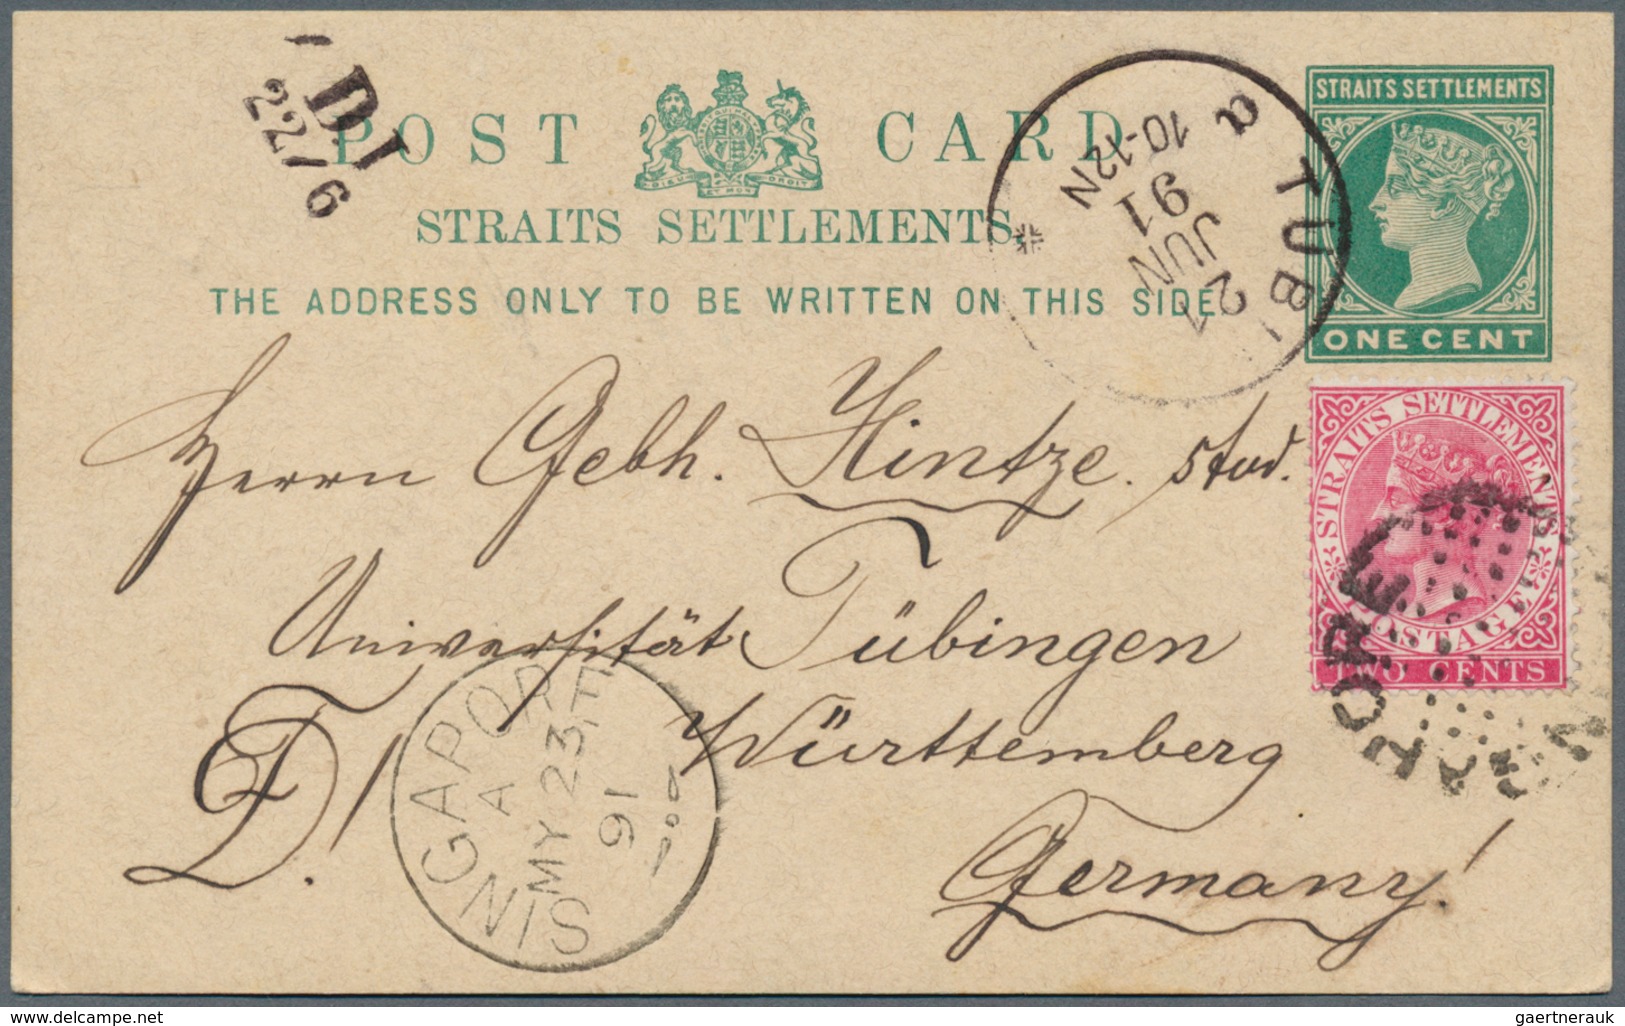 D I
22/6
POST CARD
STRAITS SETTLEMENTS
THE ADDRESS ONLY TO BE WRITTEN ON THIS SIDE
DIEU ET MON DROIT
a TUBI
10-12N
91
JUN
21
STRAITS SETTLEMENTS
ONE CENT
STRAITS SETTLEMENTS
POSTAGE
TWO CENTS
Herrn Gebh. Hintze. stud.
Universität Tübingen
Württemberg
Germany!
D!
SINGAPORE
A
MY 23
91
delcampe.net
gaertnerauk